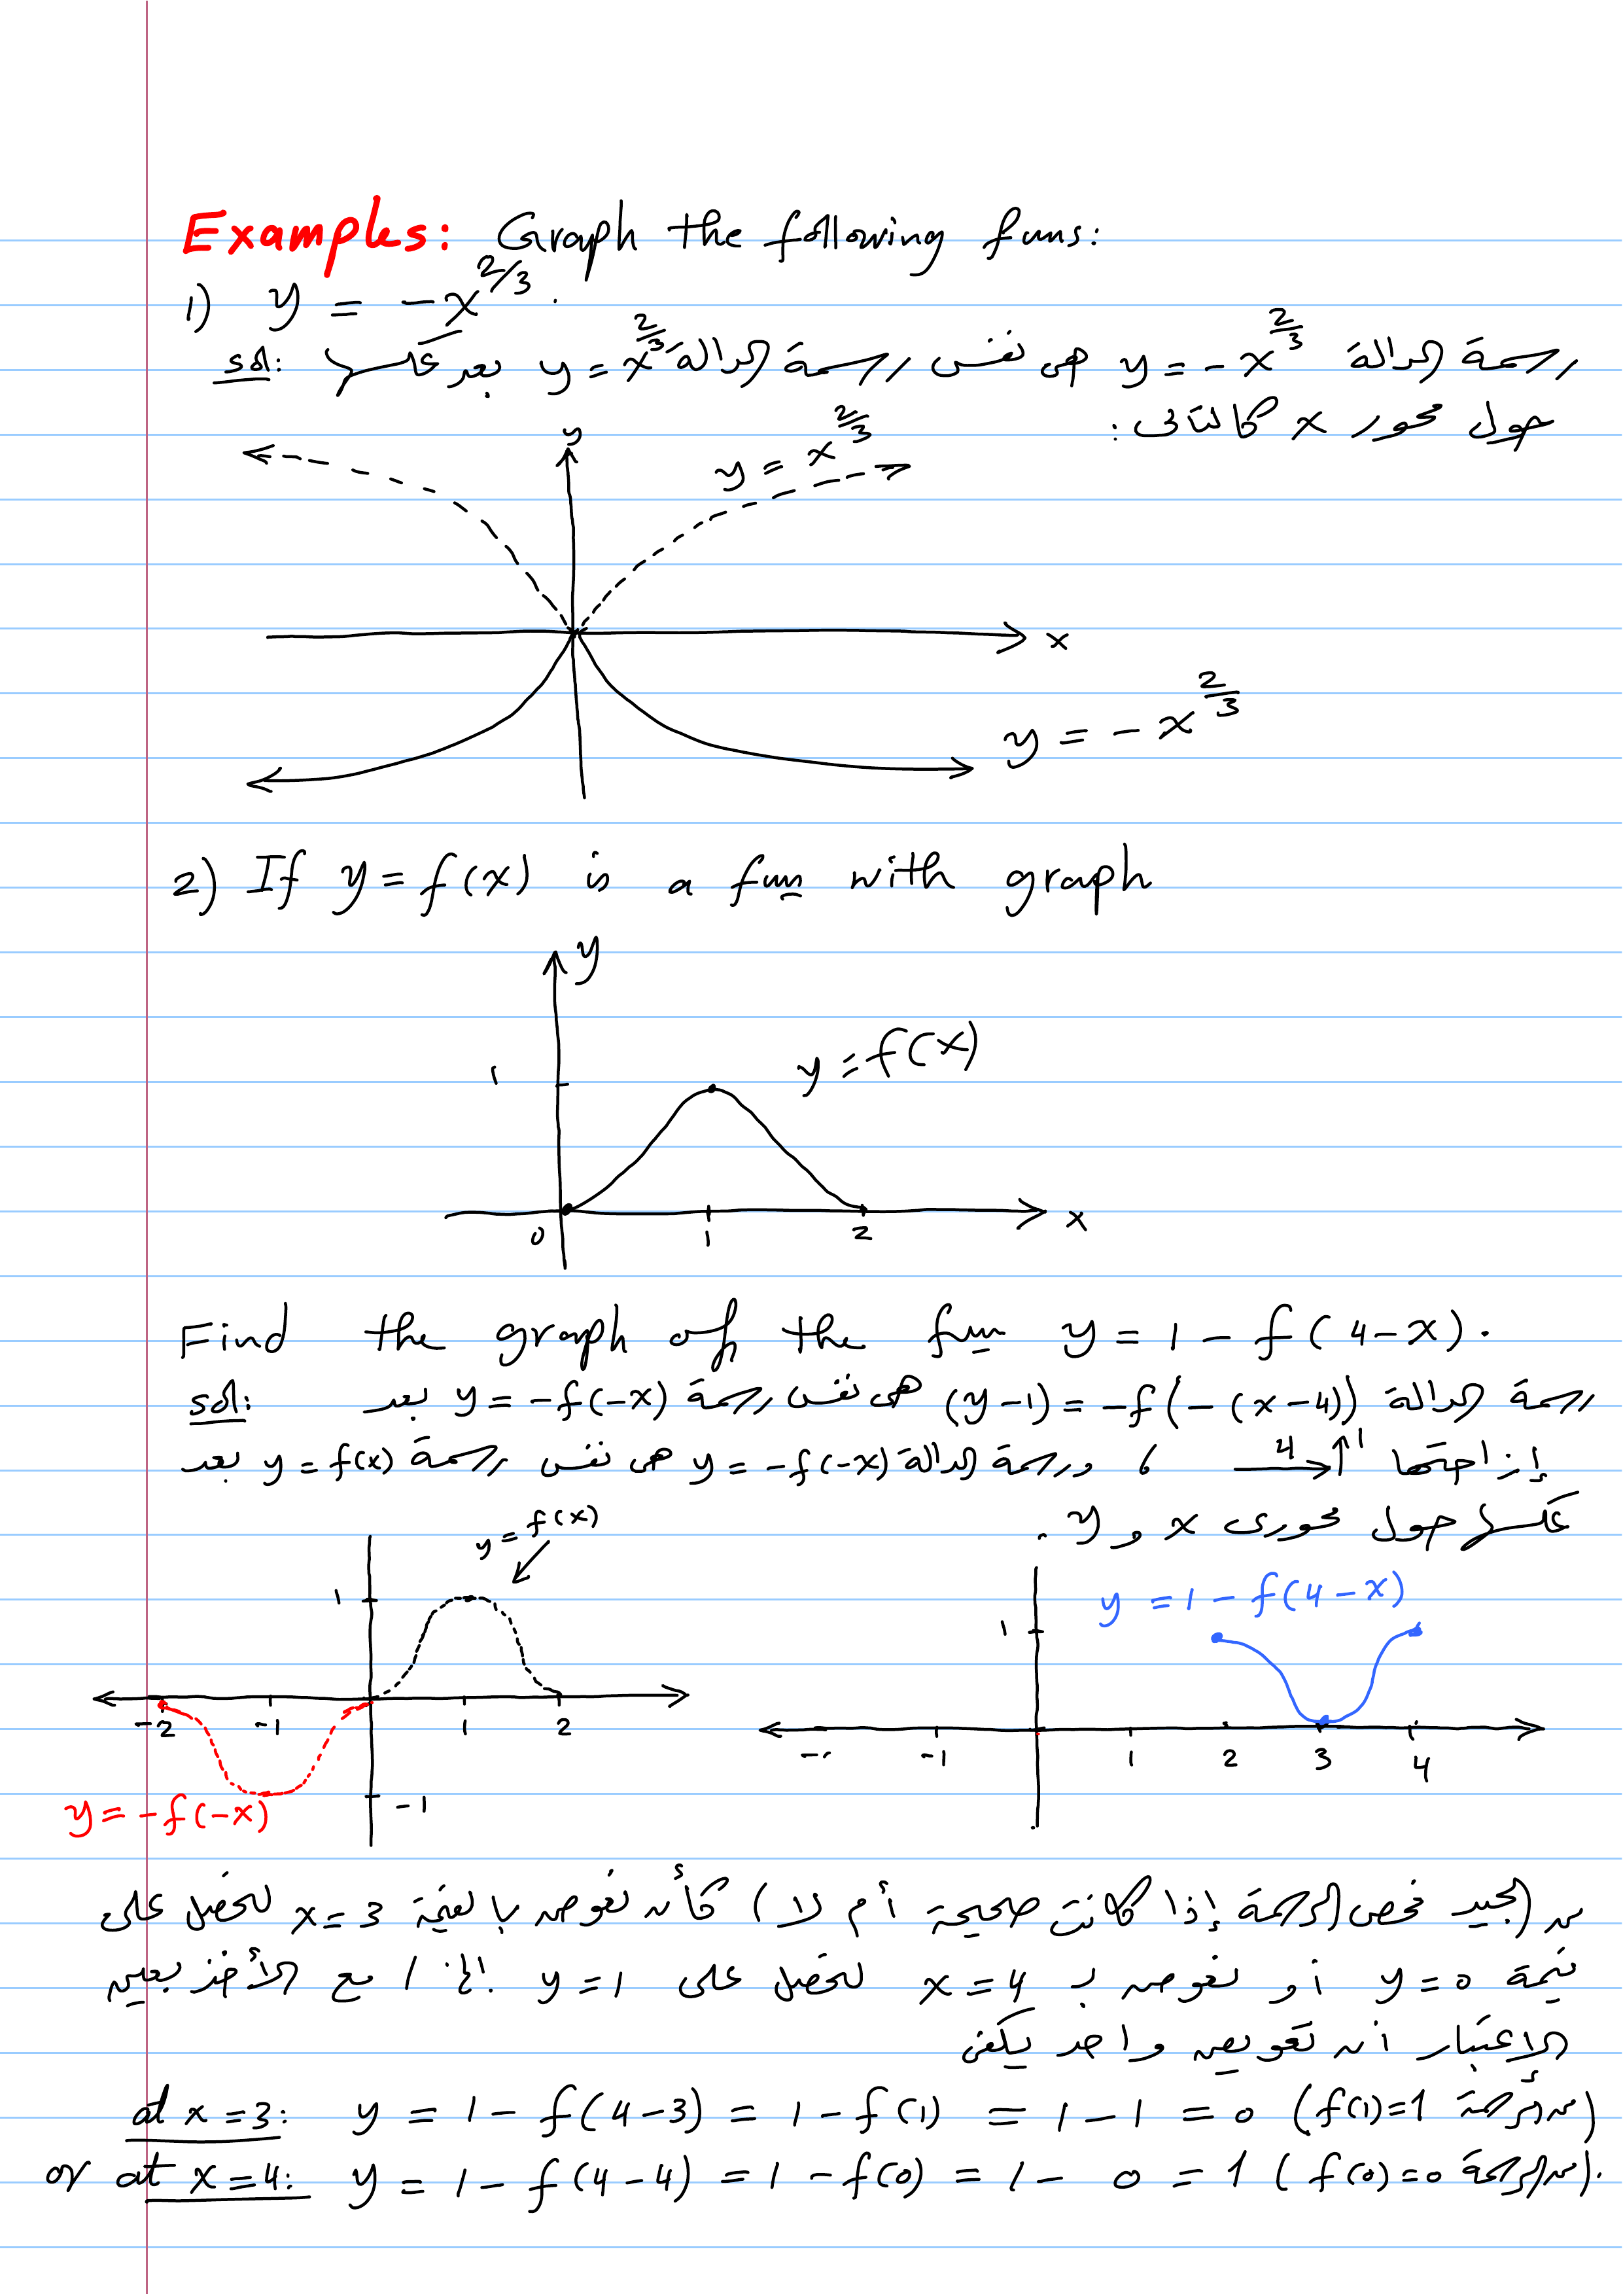 Examples: Graph the following funs:
1) y = -x^{2/3}.
sol: رسمة الدالة y = -x^{2/3} هي نفس رسمة الدالة y = x^{2/3} بعد عكسها
حول محور x كالتالي:
y
y = x^{2/3}
x
y = -x^{2/3}
2) If y = f(x) is a fun with graph
y
1
y = f(x)
0 1 2 x
Find the graph of the fun y = 1 - f(4-x).
sol: رسمة الدالة (y-1) = -f(-(x-4)) هي نفس رسمة y = -f(-x) بعد
إزاحتها 4→ ↑1 ، ورسمة الدالة y = -f(-x) هي نفس رسمة y = f(x) بعد
عكسها حول محوري x و y.
y = f(x)
1
-2 -1 1 2
-1
y = -f(-x)
y = 1 - f(4-x)
1
-1 1 2 3 4
من الجيد فحص الرسمة (إذا كانت صحيحة أم لا) كأن نعوض بالقيمة x = 3 لنحصل على
قيمة y = 0 أو نعوض بـ x = 4 لنحصل على y = 1 مع الأخذ بعين
الإعتبار أن تعويض واحد يكفي
at x = 3: y = 1 - f(4-3) = 1 - f(1) = 1 - 1 = 0 (f(1)=1 من الرسمة)
or at x = 4: y = 1 - f(4-4) = 1 - f(0) = 1 - 0 = 1 (f(0)=0 من الرسمة).